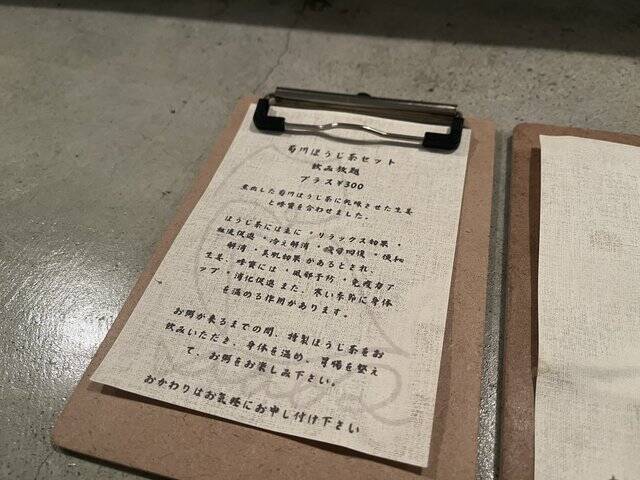 菊川ほうじ茶セット
飲み放題
プラス¥300
煮出した菊川ほうじ茶に乾燥させた生姜
と蜂蜜を合わせました。
ほうじ茶には主に・リラックス効果・
血流促進・冷え解消・疲労回復・便秘
解消・美肌効果があるとされ、
生姜・蜂蜜には・風邪予防・免疫力ア
ップ・消化促進また、寒い季節に身体
を温める作用があります。
お粥が来るまでの間、特製ほうじ茶をお
飲みいただき、身体を温め、胃腸を整え
て、お粥をお楽しみ下さい。
おかわりはお気軽にお申し付け下さい